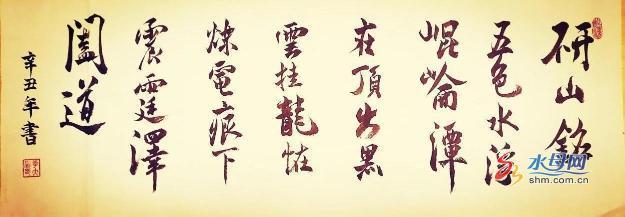 研山銘
五色水浮
崐崘潭
在頂出黑
雲挂龍恠
爍電痕下
震霆澤
闔道
辛丑年書
水母网
shm.com.cn